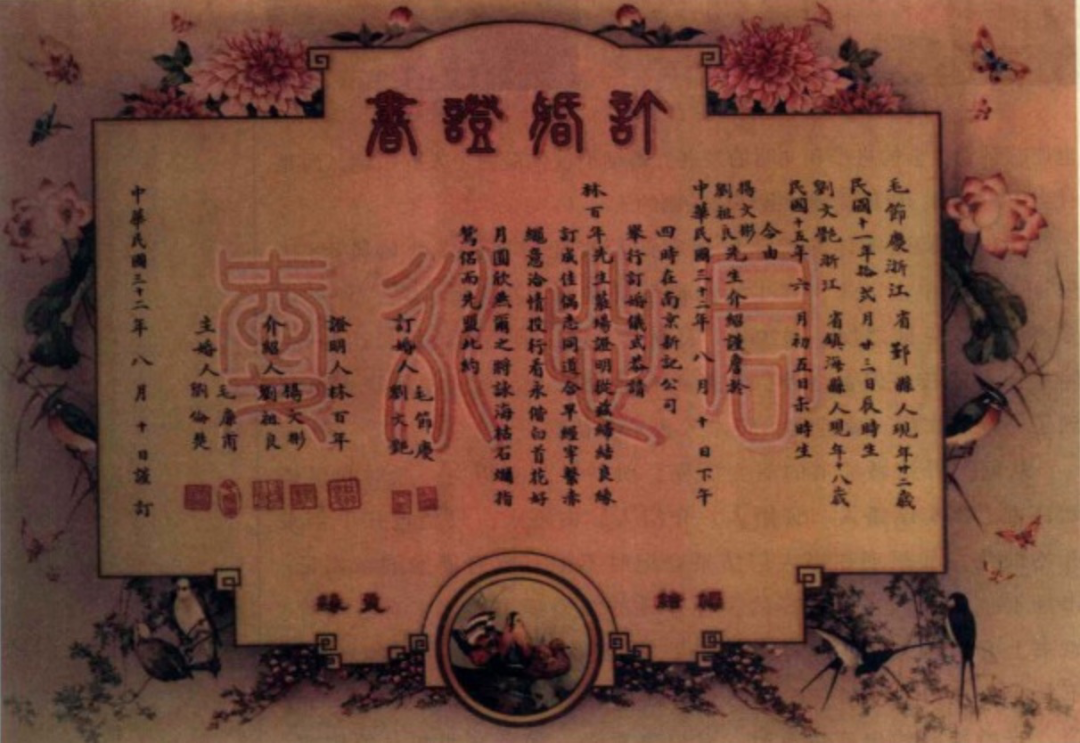 訂婚證書
毛節慶浙江省鄞縣人現年廿二歲
民國十一年拾弍月廿三日辰時生
劉文艷浙江省鎮海縣人現年十八歲
民國十五年六月初五日未時生
今由
楊文彬
劉祖良先生介紹謹詹於
中華民國三十二年八月十日下午
四時在南京新記公司
舉行訂婚儀式恭請
林百年先生蒞場證明從茲締結良緣
訂成佳偶志同道合早經牢繫赤
繩意洽情投行看永偕白首花好
月圓欣燕爾之將詠海枯石爛指
鴛侶而先盟此約
訂婚人
毛節慶
劉文艷
證明人林百年
介紹人
楊文彬
劉祖良
主婚人
毛廉甫
劉
中華民國三十二年八月十日謹訂
締結
良緣